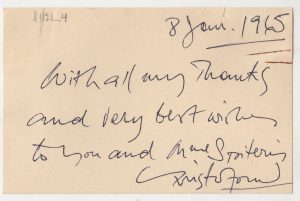 B1/21_4
8 Jan. 1965
With all my Thanks
and very best wishes
to you and Mme Spiteris